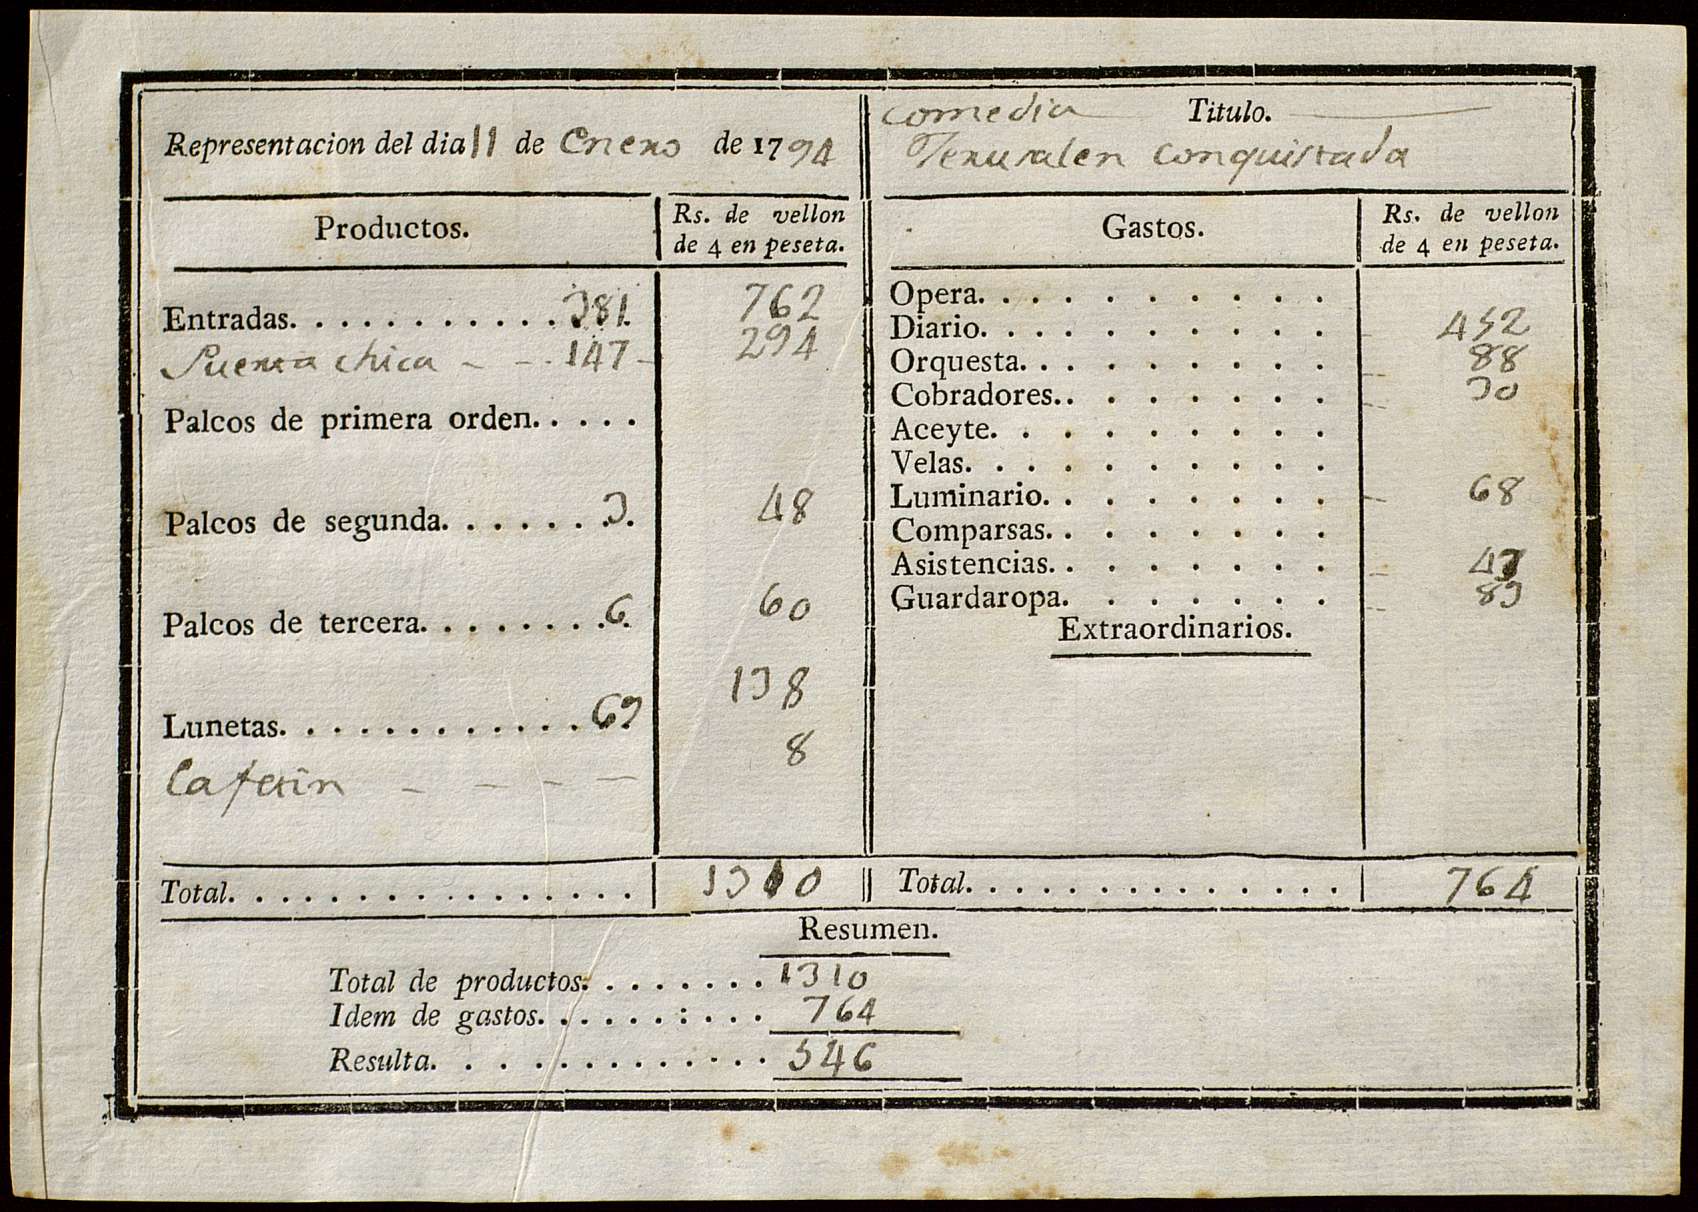 Representacion del dia 11 de Enero de 1794
Comedia Titulo.
Jerusalen conquistada
Productos. Rs. de vellon
de 4 en peseta.
Entradas. . . . . . . . . . . 381. 762
Puerta chica - - 147 - 294
Palcos de primera orden. . . . .
Palcos de segunda. . . . . . . 3. 48
Palcos de tercera. . . . . . . . 6. 60
Lunetas. . . . . . . . . . . . . 69 138
Cafetin - - - - 8
Total. . . . . . . . . . . . . . . . 1310
Gastos. Rs. de vellon
de 4 en peseta.
Opera. . . . . . . . . .
Diario. . . . . . . . . . 452
Orquesta. . . . . . . . . 88
Cobradores.. . . . . . . 30
Aceyte. . . . . . . . .
Velas. . . . . . . . . .
Luminario. . . . . . . . 68
Comparsas. . . . . . . .
Asistencias. . . . . . . . 43
Guardaropa. . . . . . . 83
Extraordinarios.
Total. . . . . . . . . . . . . . 764
Resumen.
Total de productos. . . . . . . . 1310
Idem de gastos. . . . . . : . . . 764
Resulta. . . . . . . . . . . . . 546